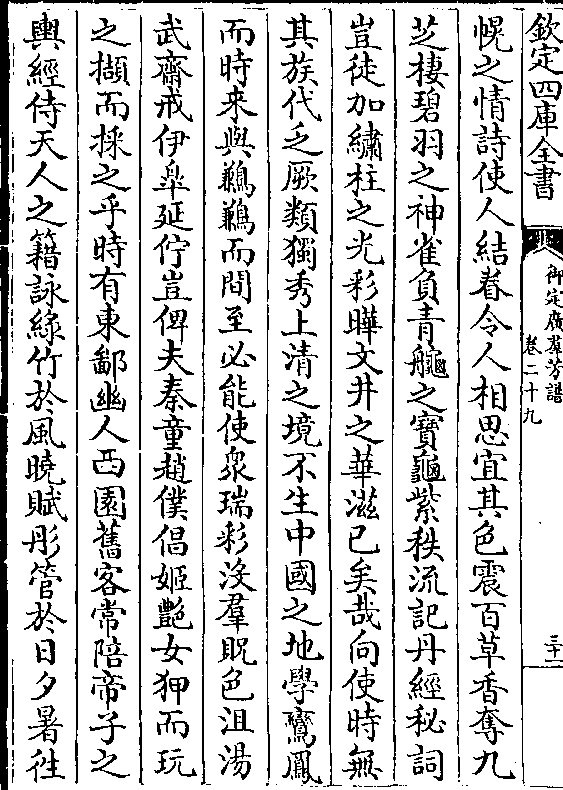 欽定四庫全書
御定廣羣芳譜
卷二十九
三十一
幌之情詩使人結眷令人相思宜其色震百草香奪九
芝棲碧羽之神雀負青龜之寶龜紫秩流記丹經秘詞
豈徒加繡柱之光彩曄文井之華滋已矣哉向使時無
其族代乏厥類獨秀上清之境不生中國之地學鸞鳳
而時来與鶼鶼而間至必能使衆瑞彩没羣貺色沮湯
武齋戒伊臯延佇豈俾夫秦童趙僕倡姬艷女狎而玩
之擷而採之乎時有東鄙幽人西園舊客常陪帝子之
輿經侍天人之籍詠綠竹於風曉賦彤管於日夕暑徃